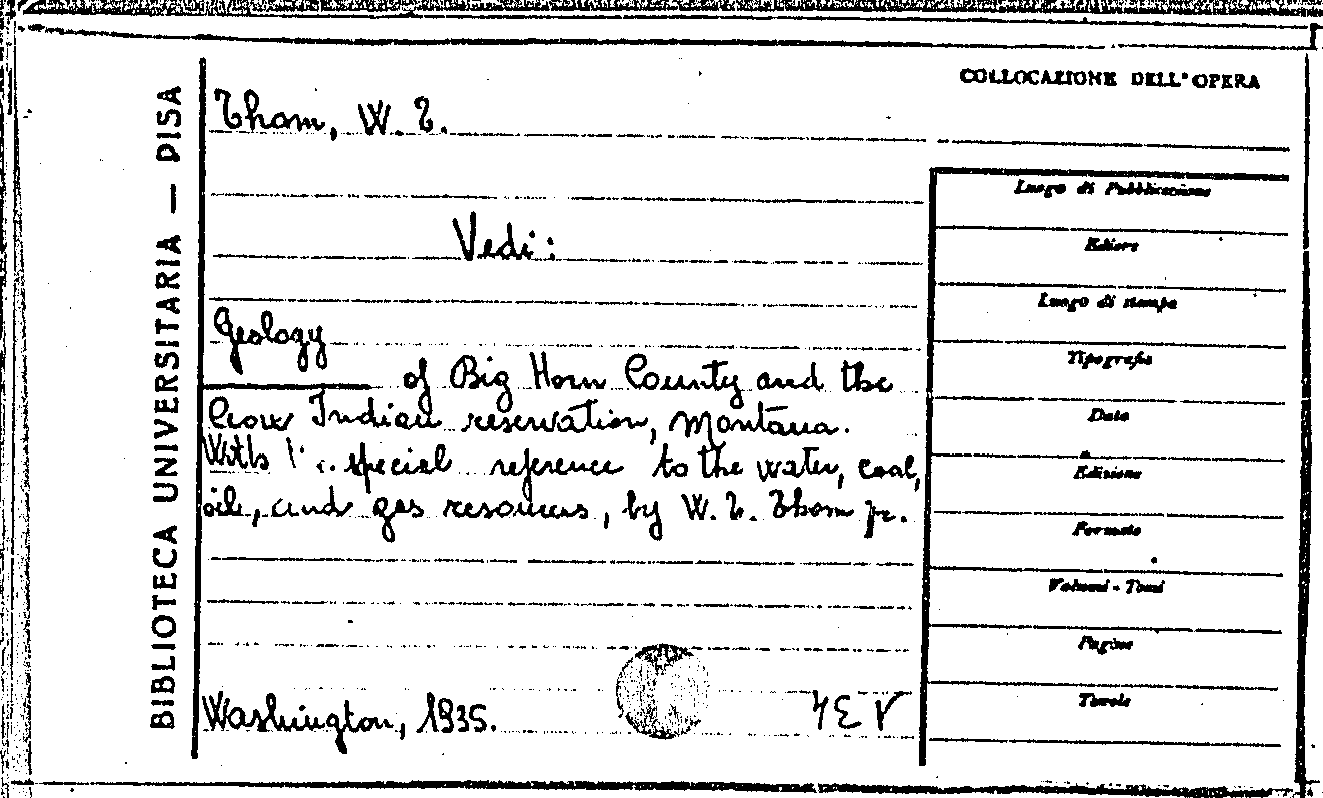 COLLOCAZIONE DELL'OPERA
BIBLIOTECA UNIVERSITARIA — PISA
Thom, W. T.
Vedi:
Geology
of Big Horn County and the
Crow Indian reservation, Montana.
With special reference to the water, coal,
oil, and gas resources, by W. T. Thom jr.
Washington, 1935.
Luogo di Pubblicazione
Editore
Luogo di stampa
Tipografia
Data
Edizione
Formato
Volumi - Tomi
Pagine
Tavole